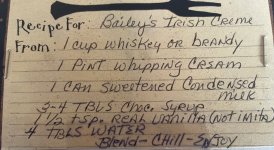 Recipe For: Bailey's Irish Creme
From: 1 cup whiskey OR brandy
1 Pint whipping cream
1 can sweetened condensed
milk
3-4 TBLS Choc. Syrup
1 1/2 tsp. REAL Vanilla (Not imita)
4 TBLS WATER
Blend - Chill - Enjoy